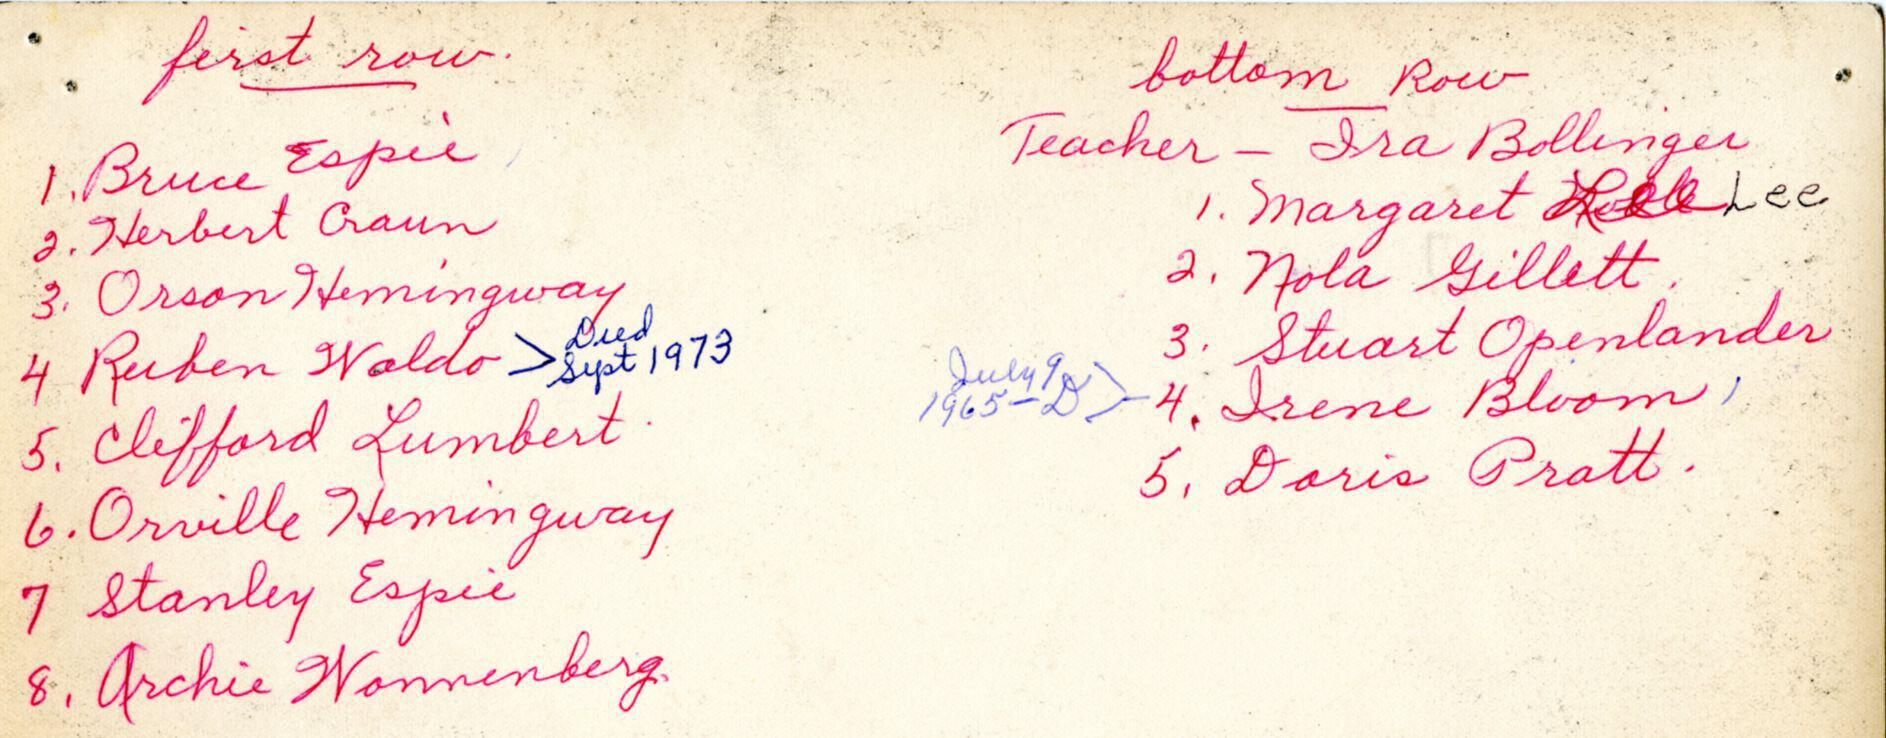 first row.
1. Bruce Espie
2. Herbert Craun
3. Orson Hemingway
4 Reuben Waldo > Died
Sept 1973
5. Clifford Lumbert.
6. Orville Hemingway
7 Stanley Espie
8. Archie Wonnenberg.
bottom Row
Teacher – Ira Bollinger
1. Margaret Lee
2. Nola Gillett.
3. Stuart Openlander
July 9
1965 – D > – 4. Irene Bloom,
5. Doris Pratt.